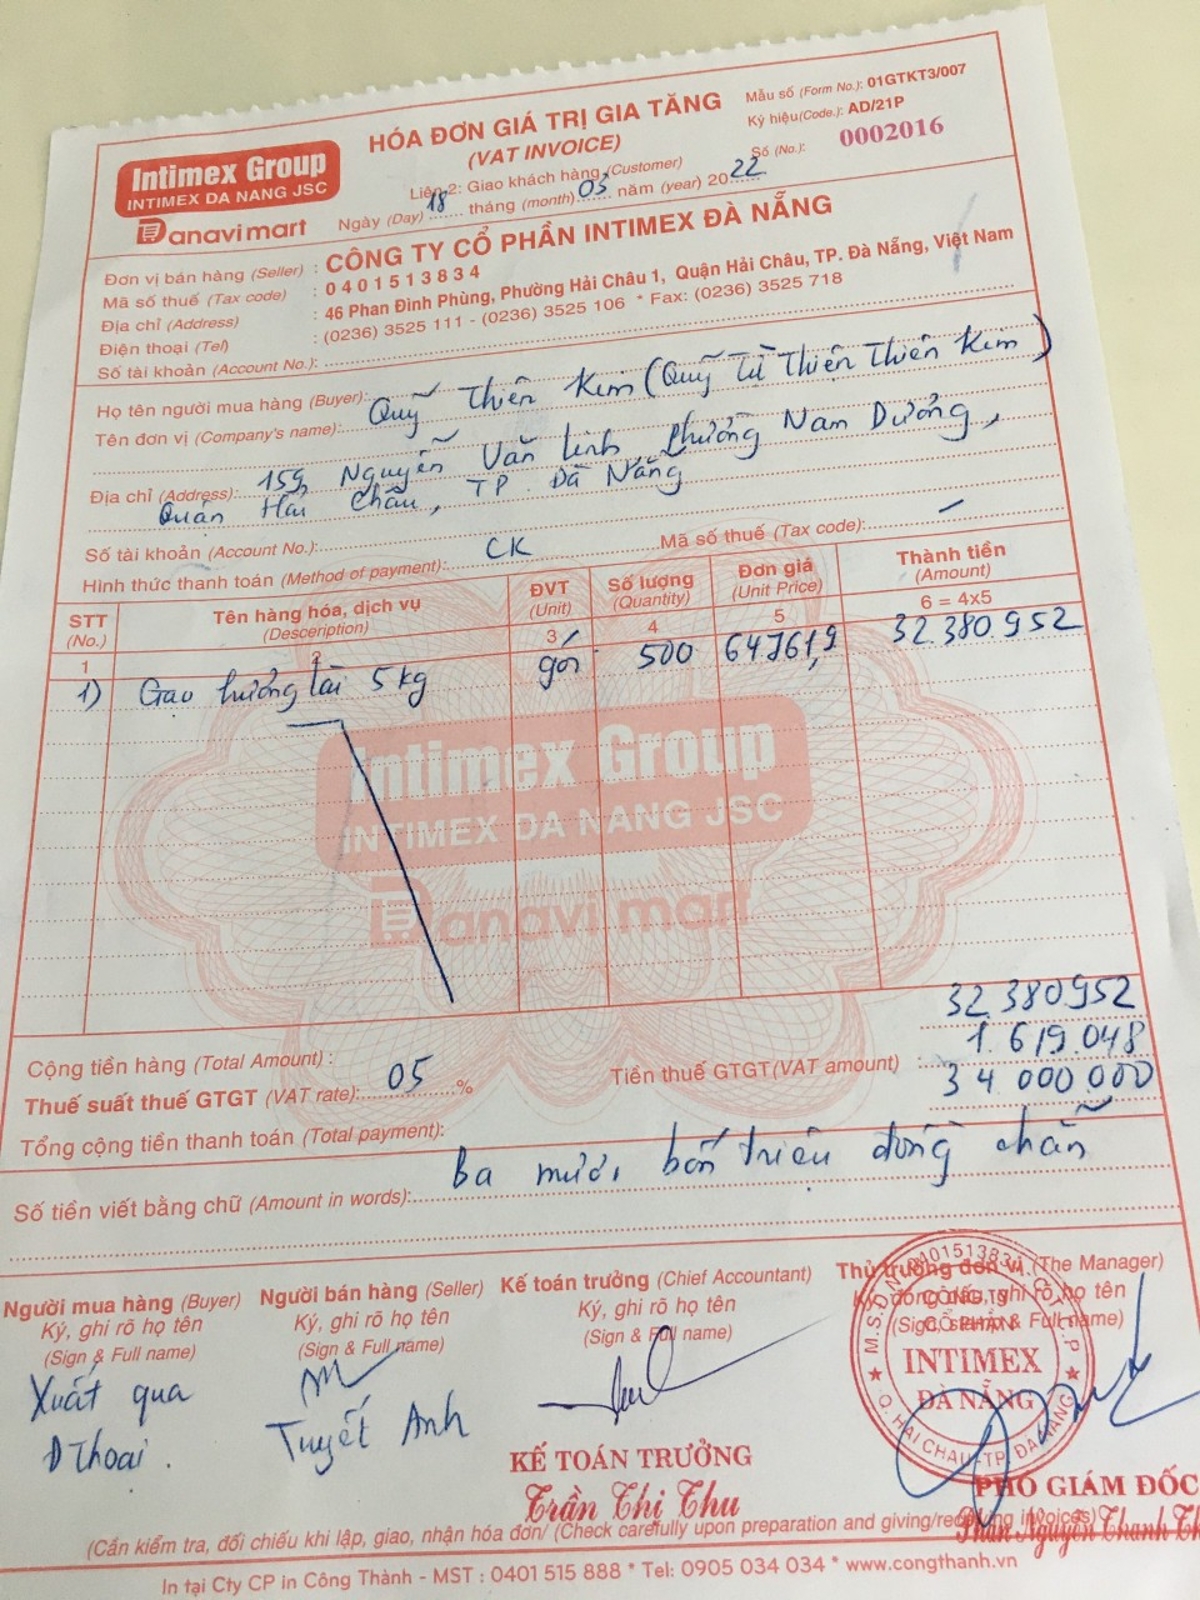 Intimex Group
INTIMEX DA NANG JSC
Danavi mart
HÓA ĐƠN GIÁ TRỊ GIA TĂNG
(VAT INVOICE)
Liên 2: Giao khách hàng (Customer)
Ngày (Day) 18 tháng (month) 05 năm (year) 2022
Mẫu số (Form No.): 01GTKT3/007
Ký hiệu(Code.): AD/21P
Số (No.): 0002016
Đơn vị bán hàng (Seller) : CÔNG TY CỔ PHẦN INTIMEX ĐÀ NẴNG
Mã số thuế (Tax code) : 0401513834
Địa chỉ (Address) : 46 Phan Đình Phùng, Phường Hải Châu 1, Quận Hải Châu, TP. Đà Nẵng, Việt Nam
Điện thoại (Tel) : (0236) 3525 111 - (0236) 3525 106 * Fax: (0236) 3525 718
Số tài khoản (Account No.):
Họ tên người mua hàng (Buyer):
Tên đơn vị (Company's name): Quỹ Thiên Kim (Quỹ Từ Thiện Thiên Kim)
Địa chỉ (Address): 159 Nguyễn Văn Linh Phường Nam Dương,
Quận Hải Châu, TP. Đà Nẵng
Số tài khoản (Account No.): Mã số thuế (Tax code): —
Hình thức thanh toán (Method of payment): CK
STT (No.) Tên hàng hóa, dịch vụ (Desceription) ĐVT (Unit) Số lượng (Quantity) Đơn giá (Unit Price) Thành tiền (Amount)
1 2 3 4 5 6 = 4x5
1) Gạo hương lài 5kg gói 500 64761,9 32.380.952
Intimex Group
INTIMEX DA NANG JSC
Danavi mart
Cộng tiền hàng (Total Amount) : 32.380.952
Thuế suất thuế GTGT (VAT rate): 05 % Tiền thuế GTGT(VAT amount) : 1.619.048
Tổng cộng tiền thanh toán (Total payment): 34.000.000
Số tiền viết bằng chữ (Amount in words): Ba mươi bốn triệu đồng chẵn
Người mua hàng (Buyer) Người bán hàng (Seller) Kế toán trưởng (Chief Accountant) Thủ trưởng đơn vị (The Manager)
Ký, ghi rõ họ tên Ký, ghi rõ họ tên Ký, ghi rõ họ tên Ký, đóng dấu, ghi rõ họ tên
(Sign & Full name) (Sign & Full name) (Sign & Full name) (Sign, stamp & Full name)
M.S.D.N: 0401513834 - C.T.C.P
CÔNG TY
CỔ PHẦN
INTIMEX
ĐÀ NẴNG
Q. HẢI CHÂU - TP. ĐÀ NẴNG
Xuất qua
Đ Thoại.
Tuyết Anh
KẾ TOÁN TRƯỞNG
Trần Thị Thu
PHÓ GIÁM ĐỐC
Phan Nguyễn Thanh
(Cần kiểm tra, đối chiếu khi lập, giao, nhận hóa đơn/ (Check carefully upon preparation and giving/receiving invoices)
In tại Cty CP in Công Thành - MST : 0401 515 888 * Tel: 0905 034 034 * www.congthanh.vn